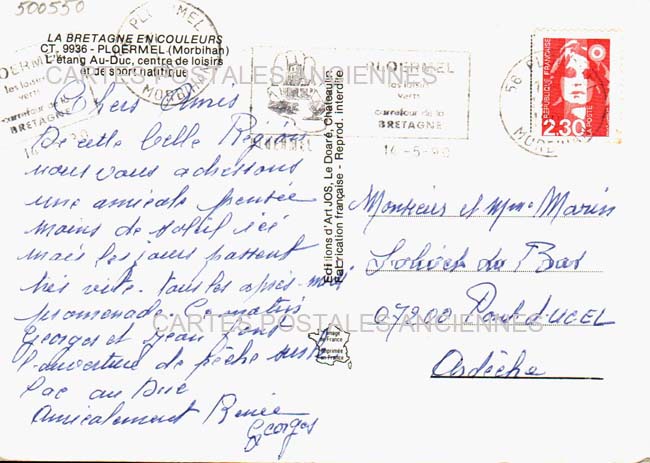 500550
LA BRETAGNE EN COULEURS
CT. 9936 - PLOERMEL (Morbihan)
L'étang Au-Duc, centre de loisirs
et de sport nautique
PLOERMEL
MORBIHAN
les loisirs
verts
carrefour de la
BRETAGNE
PLOERMEL
PLOERMEL
les loisirs
verts
carrefour de la
BRETAGNE
14-5-90
56 PL
MORBIHAN
RÉPUBLIQUE FRANÇAISE
2,30
LA POSTE
CARTES POSTALES ANCIENNES
Chers Amis
De cette belle Région
nous vous adressons
une amicale pensée
moins de soleil ici
mais les jours passent
très vite. tous les après-midi
promenade. Ce matin
Georges et Jean font
l'ouverture de pêche sur le
Lac au Duc
Amicalement Renée
Georges
Editions d'Art JOS, Le Doaré, Châteaulin
Fabrication française - Reprod. interdite.
Imagé
en France
Imprimée
en France
Monsieur et Mme Marin
du Bas
07200 Pont d'UCEL
Ardèche
CARTES POSTALES ANCIENNES